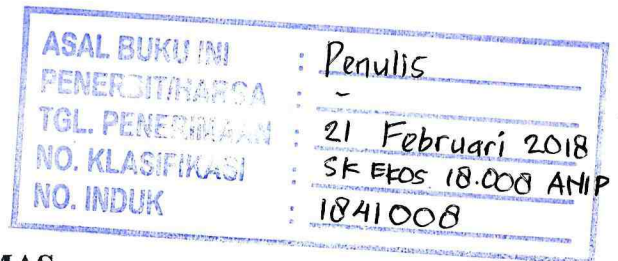 ASAL BUKU INI : Penulis
PENERBIT/HARGA : -
TGL. PENERIMAAN : 21 Februari 2018
NO. KLASIFIKASI : SK EKOS 18.008 AHIP
NO. INDUK : 1841008